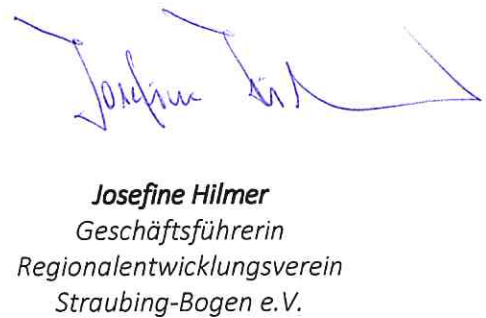 Josefine Hilmer
Josefine Hilmer
Geschäftsführerin
Regionalentwicklungsverein
Straubing-Bogen e.V.